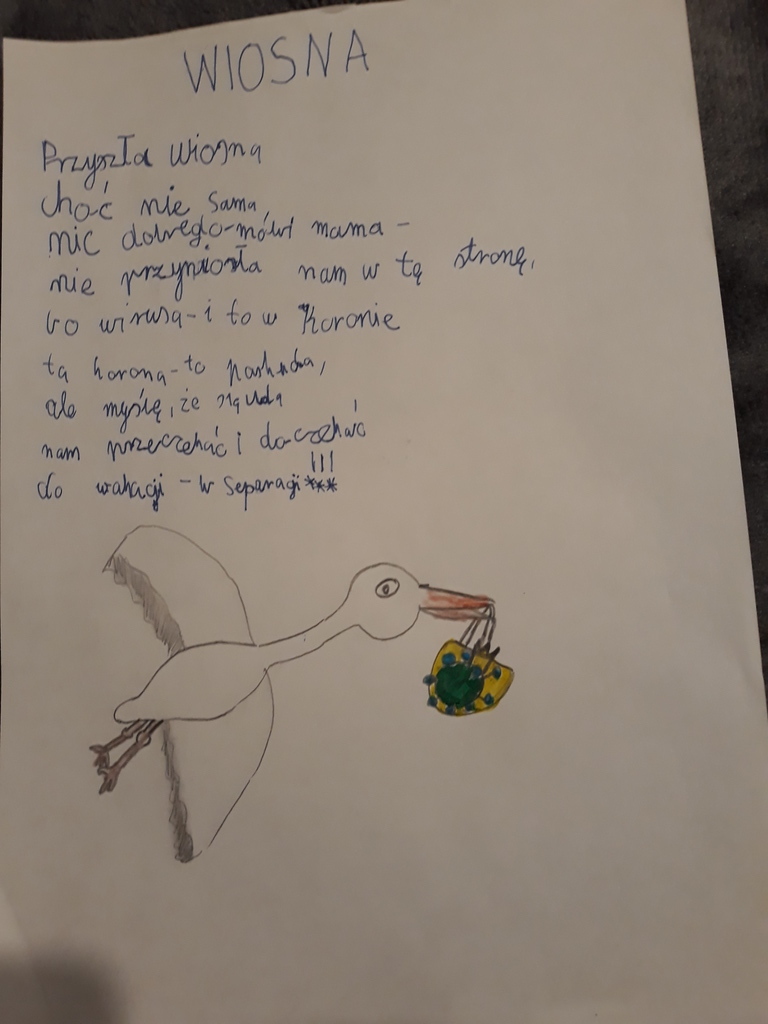 WIOSNA
Przyszła wiosna
choć nie sama,
nic dobrego-mówi mama -
nie przyniosła nam w tą stronę,
bo wirusa-i to w Koronie
ta korona-to paskuda,
ale myślę, że się uda
nam przeczekać i do-czekać
do wakacji - w separacji !!! ***